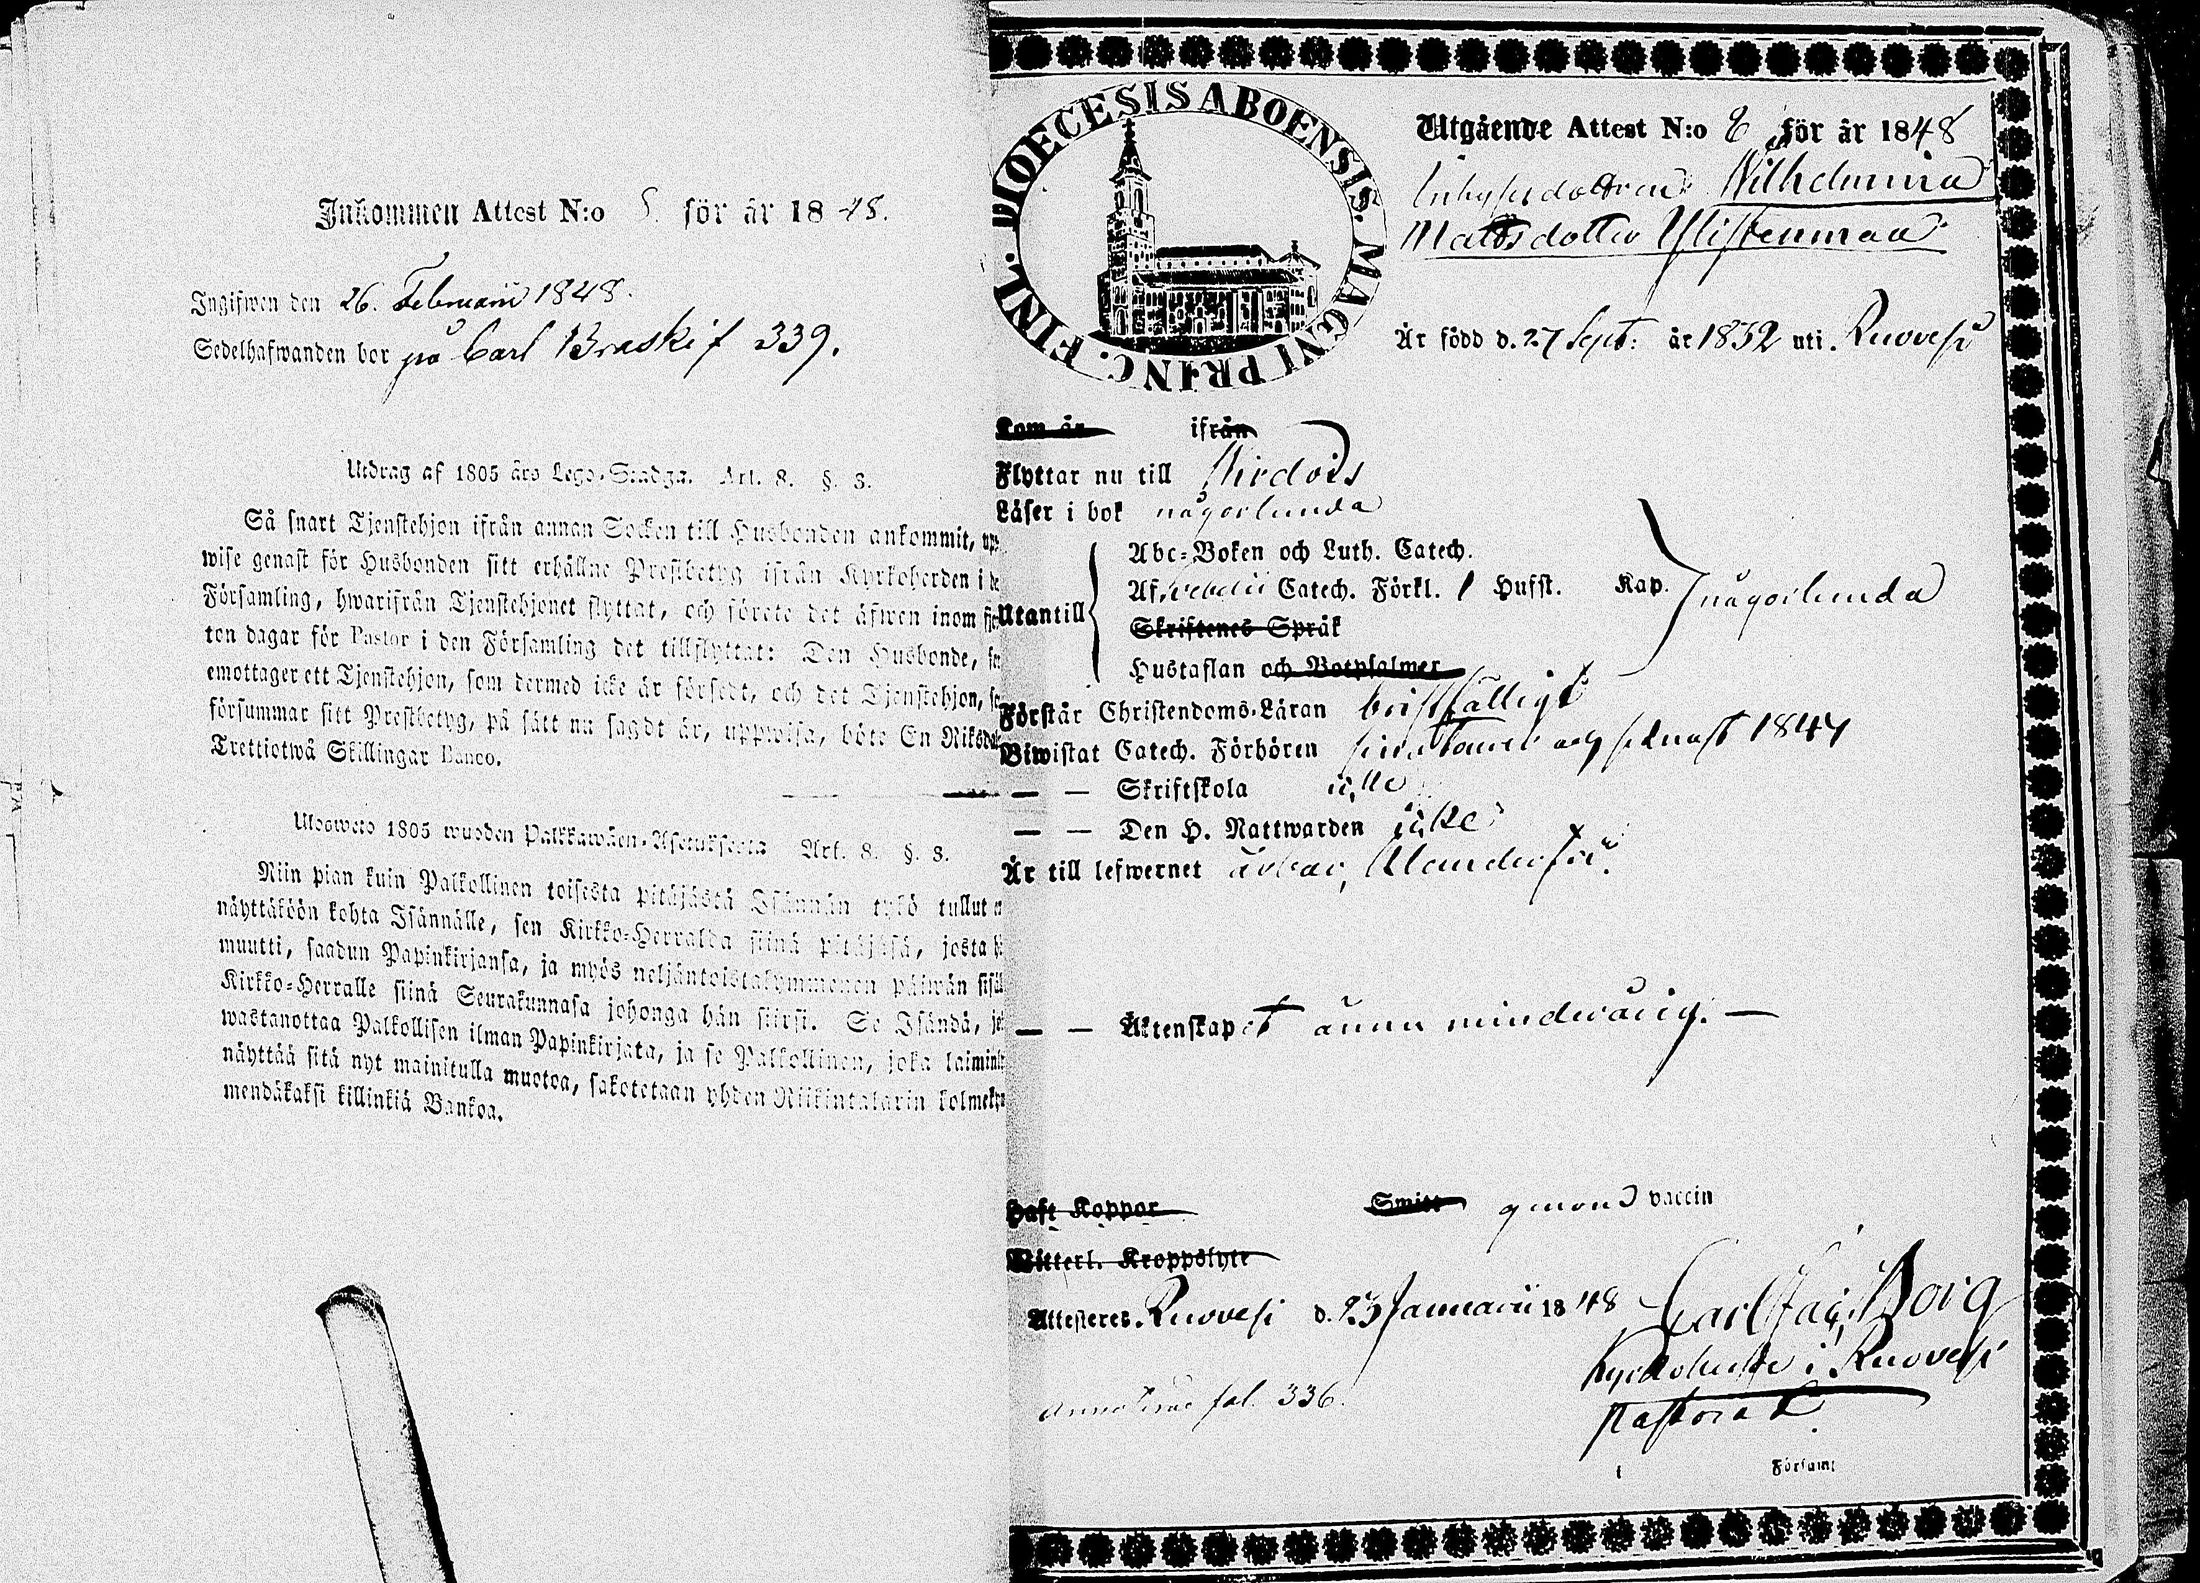 Inkommen Attest N:o 8 för år 1848.
Ingifwen den 26. Februarii 1848.
Sedelhafwanden bor på Carl Braski f 339.
Utdrag af 1805 års Lego-Stadga. Art. 8. §. 3.
Så snart Tjenstehjon ifrån annan Socken till Husbonden ankommit, upp
wise genast för Husbonden sitt erhållne Prestbetyg ifrån Kyrkoherden i de
Församling, hwarifrån Tjenstehjonet flyttat, och förete det äfwen inom fjor
ton dagar för Pastor i den Församling det tillflyttat: Den Husbonde, so
emottager ett Tjenstehjon, som dermed icke är försedt, och det Tjenstehjon, so
försummar sitt Prestbetyg, på sätt nu sagdt är, uppwisa, böte En Riksdal
Trettiotwå Skillingar Banco.
Ulosweto 1805 wuoden Palkkawäen-Asetuksesta Art. 8. §. 3.
Niin pian kuin Palkollinen toisesta pitäjästä Isännän tykö tullut o
näyttäköön kohta Isännälle, sen Kirkko-Herralda siinä pitäjäsä, josta h
muutti, saadun Papinkirjansa, ja myös neljäntoistakymmenen päiwän sisäl
Kirkko-Herralle siinä Seurakunnasa johonga hän siirsi. Se Isändä, jo
wastanottaa Palkollisen ilman Papinkirjata, ja se Palkollinen, joka laiminl
näyttää sitä nyt mainitulla muotoa, sakotetaan yhden Riikintalarin kolmeky
mendäkaksi killinkiä Bankoa.
DIOECESIS ABOENSIS. MAGNI PRINC. FINL.
Utgående Attest N:o 8 för år 1848
Inhysesdottren Wilhelmina
Mattsdotter Ylistenmaa
Är född d. 27 Sept: år 1832 uti Ruovesi
Kom år ifrån
Flyttar nu till Wirdois
Läser i bok någorlunda
Abc-Boken och Luth. Catech.
Utantill Af Svebelii Catech. Förkl. 1 Hufst. Kap. någorlunda
Skriftenes Språk
Hustaflan och Botpsalmer
Förstår Christendoms-Läran bristfälligt
Biwistat Catech. Förhören sistl och senast 1847
— — Skriftskola icke
— — Den H. Nattwarden icke
Är till lefwernet ärbar, klanderfri.
— — Äktenskapet ännu minderårig. —
Haft Koppor Smitt genom vaccin
Witterl. Kroppslyte
Attesteres. Ruovesi d. 23 Januarii 1848 Carl Borg
Kyrkoherde i Ruovesi
Pastorat.
fol. 336.
i Församl